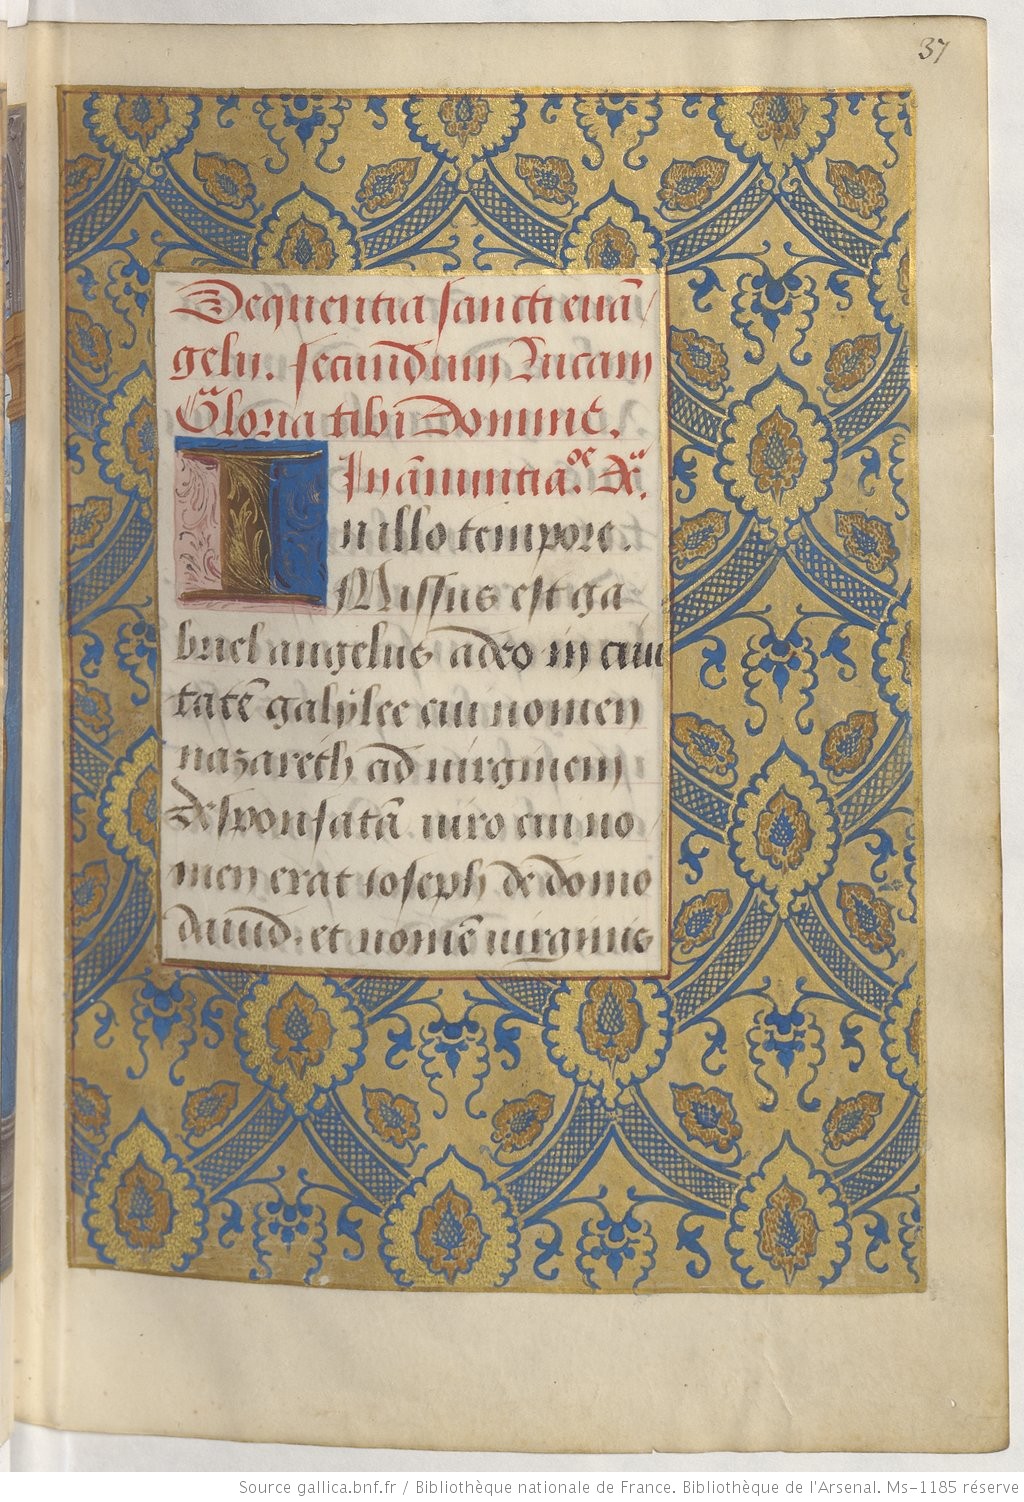 37
Sequentia sancti evā/
gelii. secundum Lucam
Gl̄oria tibi Domine.
In ānuntiaᵒᵉ. Xᵃ.
In illo tempore.
Missus est ga
briel angelus a deo in ciui
tatē galylee cui nomen
nazareth ad uirginem
desponsatā uiro cui no
men erat ioseph de domo
dauid. et nomē uirginis
Source gallica.bnf.fr / Bibliothèque nationale de France. Bibliothèque de l'Arsenal. Ms-1185 réserve